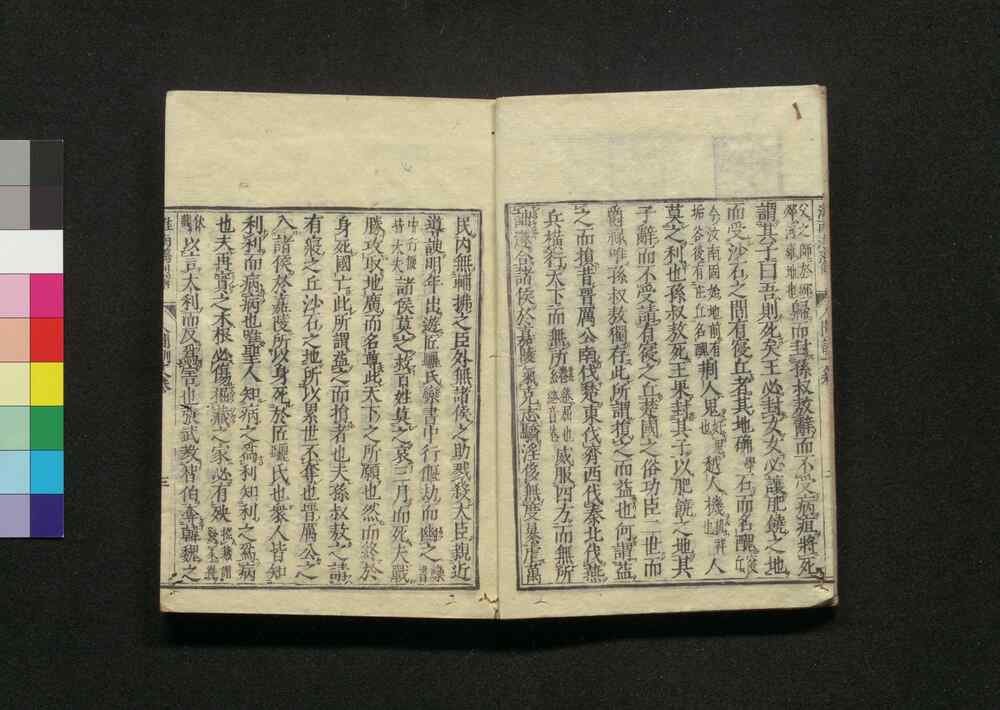 歸而封孫叔敖辭而不受病疽將死
謂其子曰吾則死矣王必封女女必讓肥饒之地
而受沙石之間有寢丘者其地确石而名醜
荊人鬼越人機人
莫之利也孫叔敖死王果封其子以肥饒之地其
子辭而不受請有寢之丘楚國之俗功臣二世而
爵祿唯孫叔敖獨存此所謂損之而益也何謂益
之而損昔晉厲公南伐楚東伐齊西伐秦北伐燕
兵橫行天下而無所綣威服四方而無所
詘遂合諸侯於嘉陵氣充志驕淫侈無度暴虐萬
民內無輔拂之臣外無諸侯之助戮殺大臣親近
導諛明年出遊匠驪氏欒書中行偃劫而幽之
諸侯莫之救百姓莫之哀三月而死夫戰
勝攻取地廣而名尊此天下之所願也然而終於
身死國亡此所謂益之而損者也夫孫叔敖之請
有寢之丘沙石之地所以累世不奪也晉厲公之
合諸侯於嘉陵所以身死於匠驪氏也衆人皆知
利利而病病也唯聖人知病之爲利知利之爲病
也夫再實之木根必傷掘藏之家必有殃
以言大利而反爲害也張武教智伯奪韓魏之